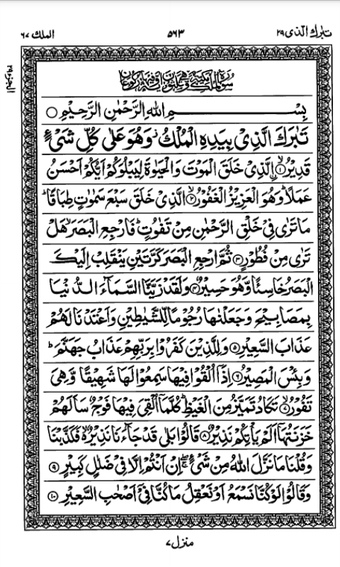 تبٰرك الذی ٢٩ ٥٦٣ الملك ٦٧
بِسْمِ اللهِ الرَّحْمٰنِ الرَّحِيْمِ
تَبٰرَكَ الَّذِيْ بِيَدِهِ الْمُلْكُ وَهُوَ عَلٰى كُلِّ شَيْءٍ
قَدِيْرُ ۙ۝١ الَّذِيْ خَلَقَ الْمَوْتَ وَالْحَيٰوةَ لِيَبْلُوَكُمْ اَيُّكُمْ اَحْسَنُ
عَمَلًا ؕ وَهُوَ الْعَزِيْزُ الْغَفُوْرُ ۙ۝٢ الَّذِيْ خَلَقَ سَبْعَ سَمٰوٰتٍ طِبَاقًا ؕ
مَا تَرٰى فِيْ خَلْقِ الرَّحْمٰنِ مِنْ تَفٰوُتٍ ؕ فَارْجِعِ الْبَصَرَ ۙ هَلْ
تَرٰى مِنْ فُطُوْرٍ ۝٣ ثُمَّ ارْجِعِ الْبَصَرَ كَرَّتَيْنِ يَنْقَلِبْ اِلَيْكَ
الْبَصَرُ خَاسِئًا وَّهُوَ حَسِيْرٌ ۝٤ وَلَقَدْ زَيَّنَّا السَّمَآءَ الدُّنْيَا
بِمَصَابِيْحَ وَجَعَلْنٰهَا رُجُوْمًا لِّلشَّيٰطِيْنِ وَاَعْتَدْنَا لَهُمْ
عَذَابَ السَّعِيْرِ ۝٥ وَلِلَّذِيْنَ كَفَرُوْا بِرَبِّهِمْ عَذَابُ جَهَنَّمَ ؕ
وَبِئْسَ الْمَصِيْرُ ۝٦ اِذَآ اُلْقُوْا فِيْهَا سَمِعُوْا لَهَا شَهِيْقًا وَّهِيَ
تَفُوْرُ ۙ۝٧ تَكَادُ تَمَيَّزُ مِنَ الْغَيْظِ ؕ كُلَّمَآ اُلْقِيَ فِيْهَا فَوْجٌ سَاَلَهُمْ
خَزَنَتُهَآ اَلَمْ يَاْتِكُمْ نَذِيْرٌ ۝٨ قَالُوْا بَلٰى قَدْ جَآءَنَا نَذِيْرٌ ۙ فَكَذَّبْنَا
وَقُلْنَا مَا نَزَّلَ اللهُ مِنْ شَيْءٍ ۚ اِنْ اَنْتُمْ اِلَّا فِيْ ضَلٰلٍ كَبِيْرٍ ۝٩
وَقَالُوْا لَوْ كُنَّا نَسْمَعُ اَوْ نَعْقِلُ مَا كُنَّا فِيْٓ اَصْحٰبِ السَّعِيْرِ ۝١٠
منزل ٧